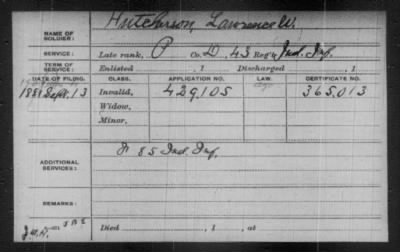 NAME OF SOLDIER: Hutchinson, Lawrence W.
SERVICE: Late rank, P Co. D, 43 Reg't Ind. Inf.
TERM OF SERVICE: Enlisted , 1 Discharged , 1
DATE OF FILING. CLASS. APPLICATION NO. LAW. CERTIFICATE NO.
1881 Sept. 13 Invalid, 429,105 365,013
Widow,
Minor,
ADDITIONAL SERVICES: F 85 Ind. Inf.
REMARKS:
Died , 1 , at